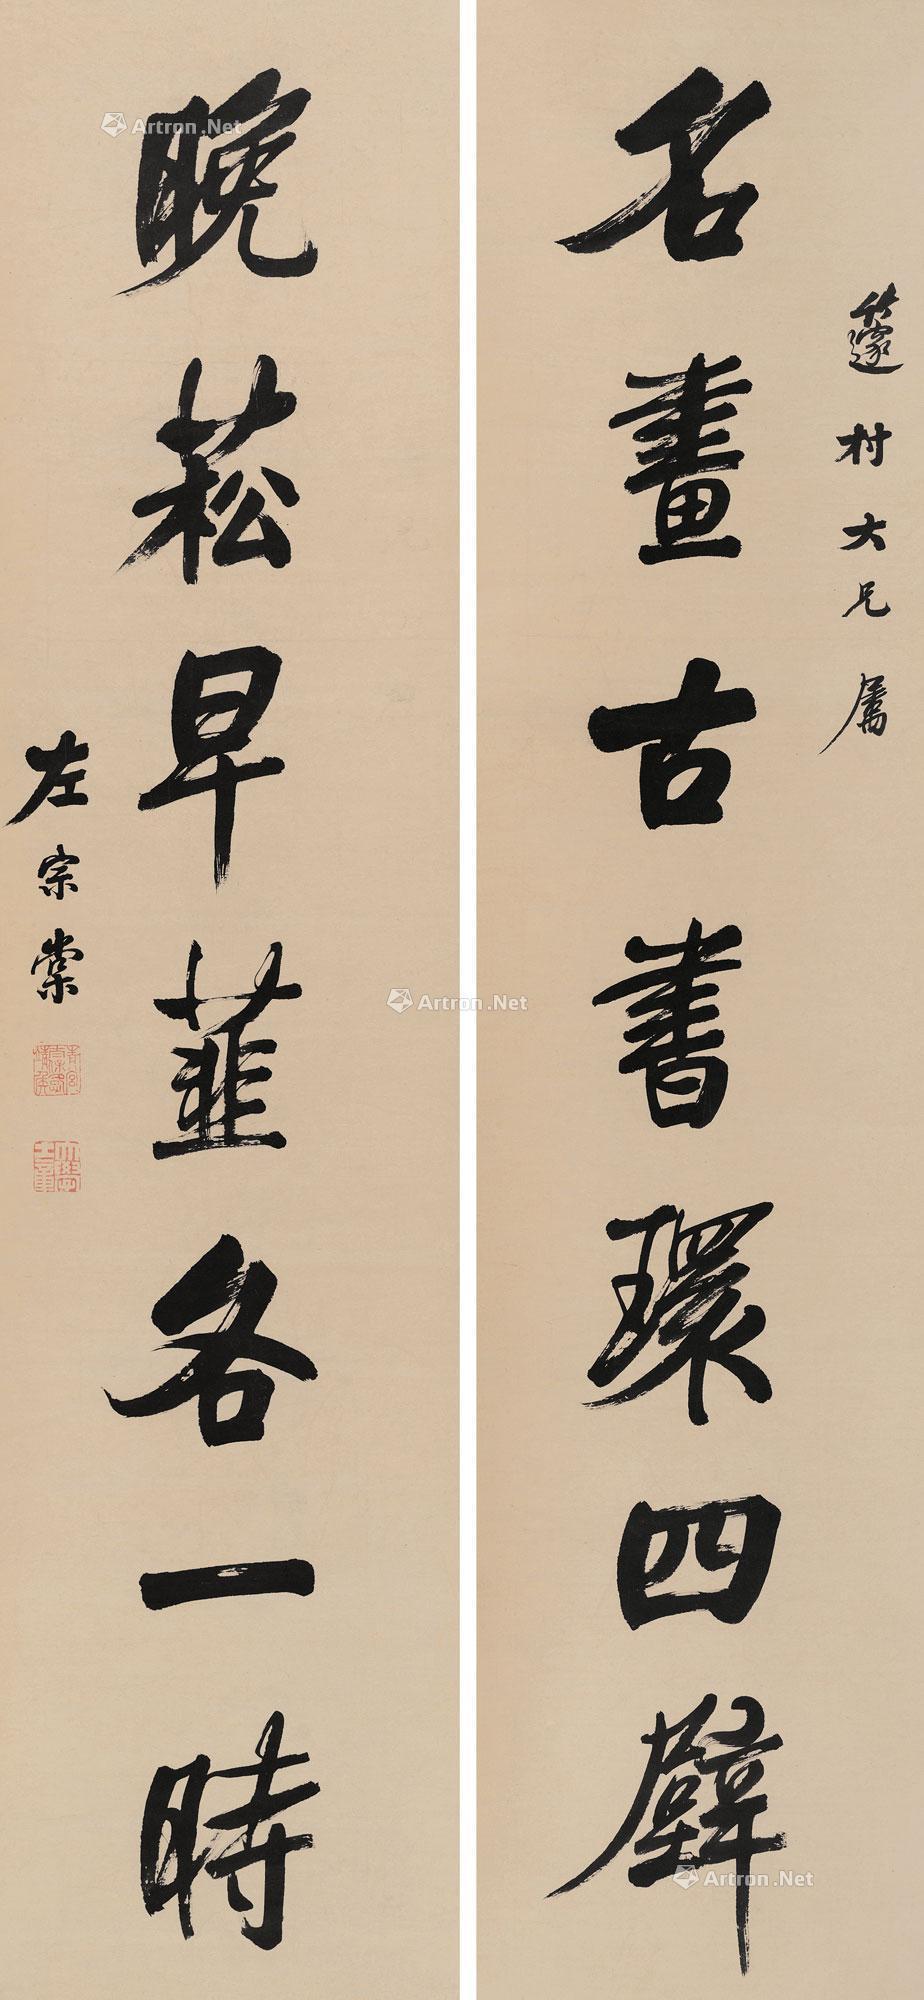 籧村大兄屬
名畫古書環四壁
晚菘早韭各一時
左宗棠
Artron.Net
Artron.Net
Artron.Net